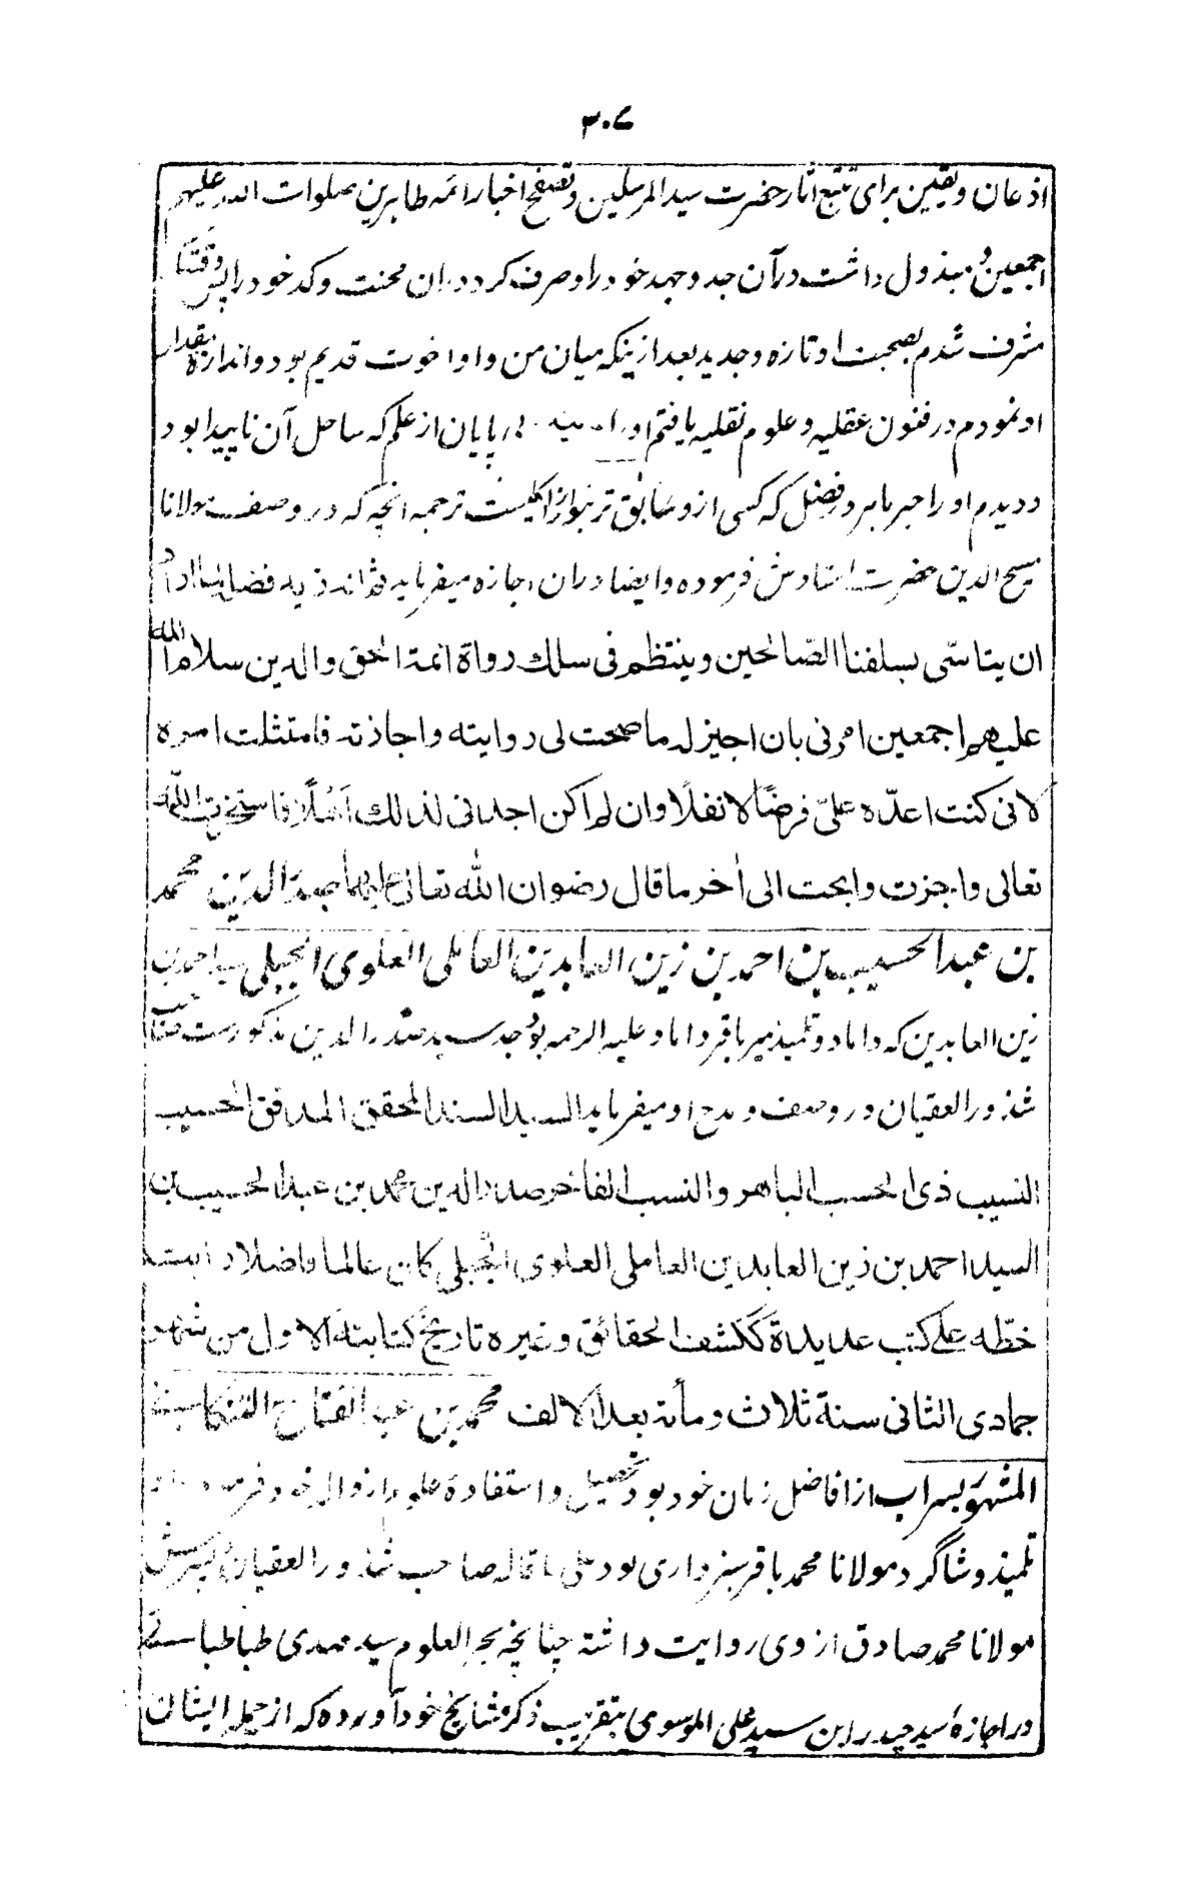 ۳۰۷
اذعان ویقین برای تتبع اثار حضرت سید المرسلین وتصفح اخبار ائمه طاهرین صلوات الله علیهم
اجمعین مبذول داشت در آن جد وجهد خود را وصرف کرد دران محنت وکد خود را پس وقتیکه
مشرف شدم بصحبت او تازه وجدید بعد ازینکه میان من واو اخوت قدیم بود واندازه بمقدار
او نمودم در فنون عقلیه وعلوم نقلیه یافتم او را بی پایان از علم که ساحل آن ناپیدا بود
ودیدم او را حبر ماهر در فضل که کسی ازو سابق تر نبوده ترجمه انچه که در وصف مولانا
مسیح الدین حضرت استادش فرموده وایضا دران اجازه میفرماید
ان یتاسّی بسلفنا الصّالحین وینتظم فی سلک رواة ائمة الحق والدین سلام الله
علیهم اجمعین امرنی بان اجیز له ما صحت لی روایته واجازته فامتثلت امره
لانی کنت اعدّه علیّ فرضًا لا نفلًا وان لم اکن اجدنی لذلک اهلًا فاستخرت الله
تعالی واجزت وابحت الی أخر ما قال رضوان الله تعالی علیهما صدر الدین محمد
بن عبد الحسیب بن احمد بن زین العابدین العاملی العلوی الجبلی سید احمد بن
زین العابدین که داماد وتلمیذ میر باقر داماد علیه الرحمه بود جد سید صدر الدین مذکورست صاحب
شذور العقیان در وصف ومدح او میفرماید السید السند المحقق المدقق الحسیب
النسیب ذی الحسب الباهر والنسب الفاخر صدر الدین محمد بن عبد الحسیب بن
السید احمد بن زین العابدین العاملی العلوی الجبلی کان عالما فاضلا رایت
خطّه علی کتب عدیدة ککشف الحقائق وغیره تاریخ کتابته الاول من شهر
جمادی الثانی سنة ثلاث ومأته بعد الالف محمد بن عبد الفتاح التنکابنی
المشهور بسراب از افاضل زمان خود بود تحصیل واستفادۀ علوم از والد خود
تلمیذ وشاگرد مولانا محمد باقر سبزواری بود علی ما قال صاحب شذور العقیان پسرش
مولانا محمد صادق از وی روایت داشته چنانچه بحر العلوم سید مهدی طباطبائی
در اجازۀ سید حیدر ابن سید علی الموسوی بتقریب ذکر مشایخ خود آورده که از جمله ایشان